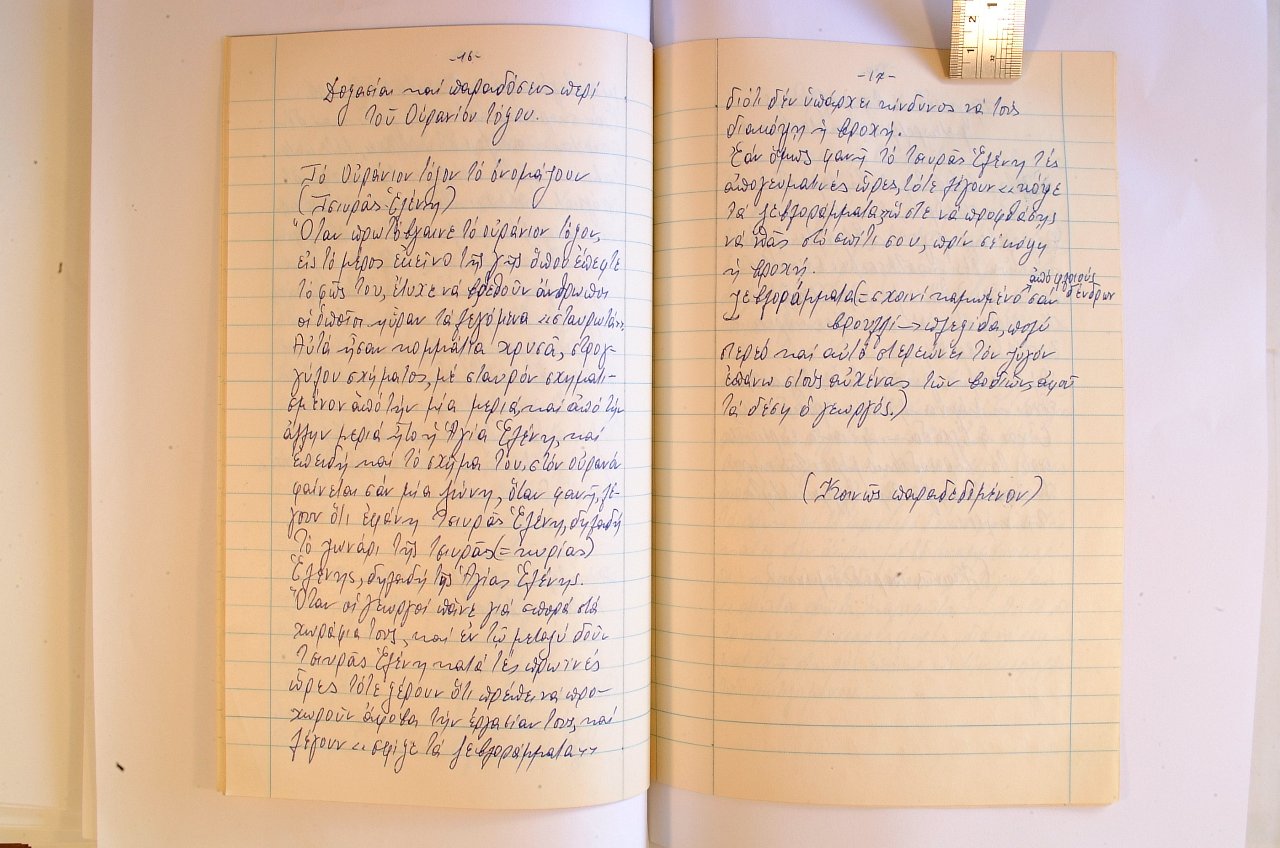 -16-
Δοξασίαι καί παραδόσεις περί
τοῦ Οὐρανίου τόξου.
Τό Οὐράνιον τόξον τό ὀνομάζουν
(Τσιυρᾶς Ἑλένη)
Ὅταν πρωτόβγαινε τό οὐράνιον τόξον,
εἰς τό μέρος ἐκεῖνο τῆς γῆς ὅπου ἔπεφτε
τό φῶς του, ἔτυχε νά βρεθοῦν ἄνθρωποι
οἱ ὁποῖοι ηὗραν τά λεγόμενα «σταυρωτά».
Αὐτά ἦσαν κομμάτια χρυσᾶ, στρογ-
γύλου σχήματος, μέ σταυρόν σχηματι-
σμένον ἀπό τήν μία μεριά, καί ἀπό τήν
ἄλλην μεριά ἦτο ἡ Ἁγία Ἑλένη, καί
ἐπειδή καί τό σχῆμα του, στόν οὐρανό
φαίνεται σάν μία ζώνη, ὅταν φανῆ, λέ-
γουν ὅτι ἐφάνη Τσιυρᾶς Ἑλένη, δηλαδή
τό ζωνάρι τῆς τσιυρᾶς (= κυρίας)
Ἑλένης, δηλαδή τῆς Ἁγίας Ἑλένης.
Ὅταν οἱ γεωργοί πᾶνε γιά σπορά στά
χωράφια τους, καί ἐν τῷ μεταξύ δοῦν
Τσιυρᾶς Ἑλένη κατά τές πρωϊνές
ὧρες τότε ξέρουν ὅτι πρέπει νά προ-
χωροῦν ἄφοβα τήν ἐργασίαν τους, καί
λέγουν «σφίξε τά ζευλοράμματα»
-17-
διότι δέν ὑπάρχει κίνδυνος νά τούς
διακόψη ἡ βροχή.
Ἐάν ὅμως φανῆ τό τσιυρᾶς Ἑλένη τές
ἀπογευματινές ὧρες, τότε λέγουν «κόψε
τά ζευλοράμματα» ὥστε νά προφθάσης
νά πᾶς στό σπίτι σου, πρίν σέ κόψη
ἡ βροχή.
ἀπό φλοιούς
ζευλοράμματα (= σχοινί καμωμένο σάν δένδρων
βρουλλί → πλεξίδα, πολύ
στερεό καί αὐτό στερεώνει τόν ζυγόν
ἐπάνω στούς αὐχένας τῶν βοδιῶν, ἀφοῦ
τά δέση ὁ γεωργός.)
(Κοινῶς παραδεδομένον)